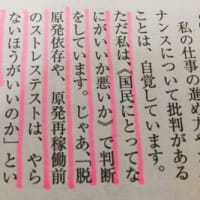 私の仕事の進め方や
ナンスについて批判がある
ことは、自覚しています。
ただ私は、《国民にとってな
にがいいか悪いか》で判断
をしています。じゃあ、「脱
原発依存や、原発再稼働前
のストレステストは、やら
ないほうがいいのか」とい